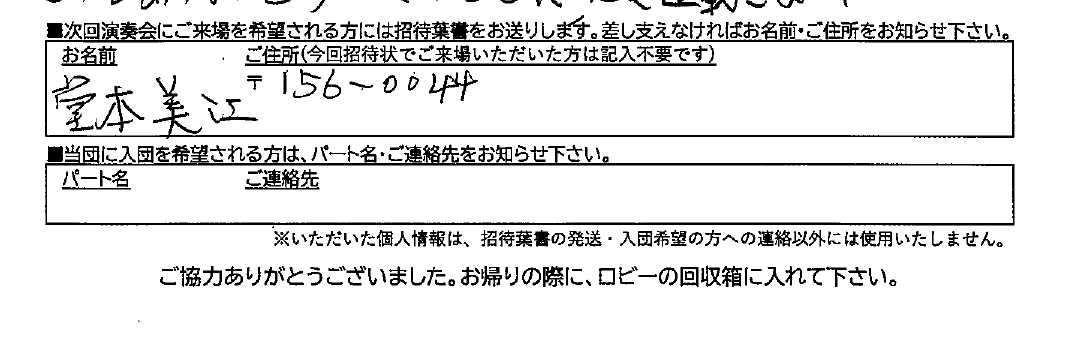 ■次回演奏会にご来場を希望される方には招待葉書をお送りします。差し支えなければお名前・ご住所をお知らせ下さい。
お名前 ご住所(今回招待状でご来場いただいた方は記入不要です)
堂本美江 〒156-0044
■当団に入団を希望される方は、パート名・ご連絡先をお知らせ下さい。
パート名 ご連絡先
※いただいた個人情報は、招待葉書の発送・入団希望の方への連絡以外には使用いたしません。
ご協力ありがとうございました。お帰りの際に、ロビーの回収箱に入れて下さい。